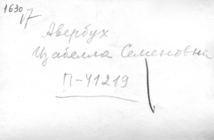 1630
17
Авербух
Изабелла Семеновна
П-41219